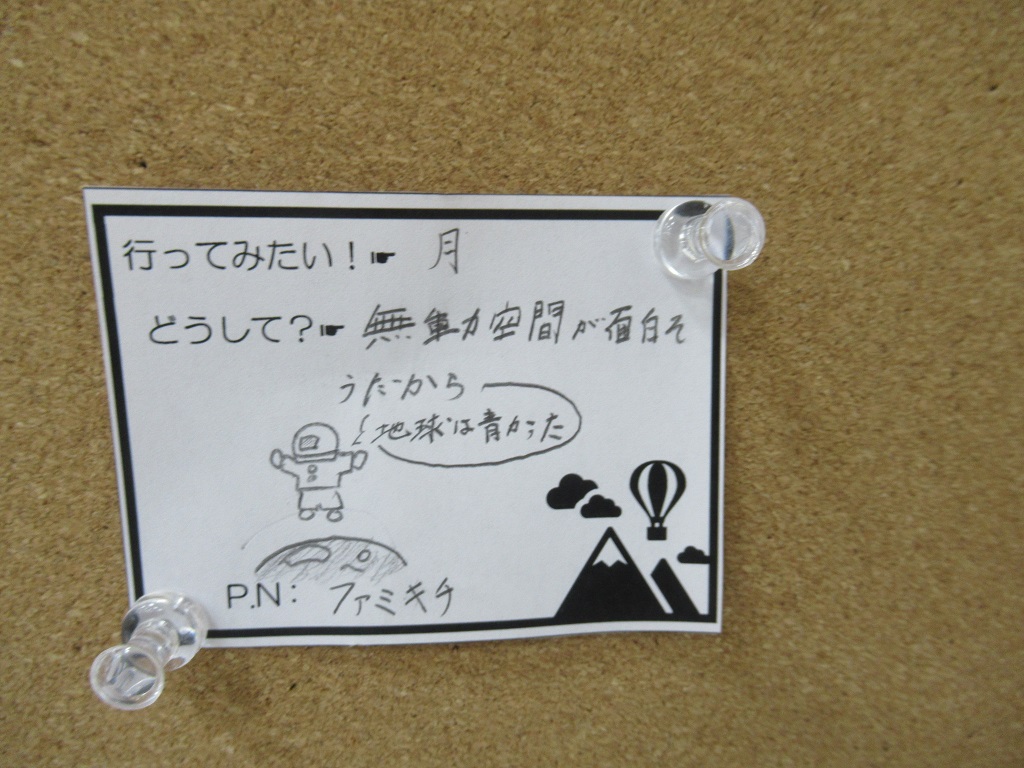 行ってみたい！☛ 月
どうして？☛ 無重力空間が面白そ
うだから
地球は青かった
P.N： ファミキチ